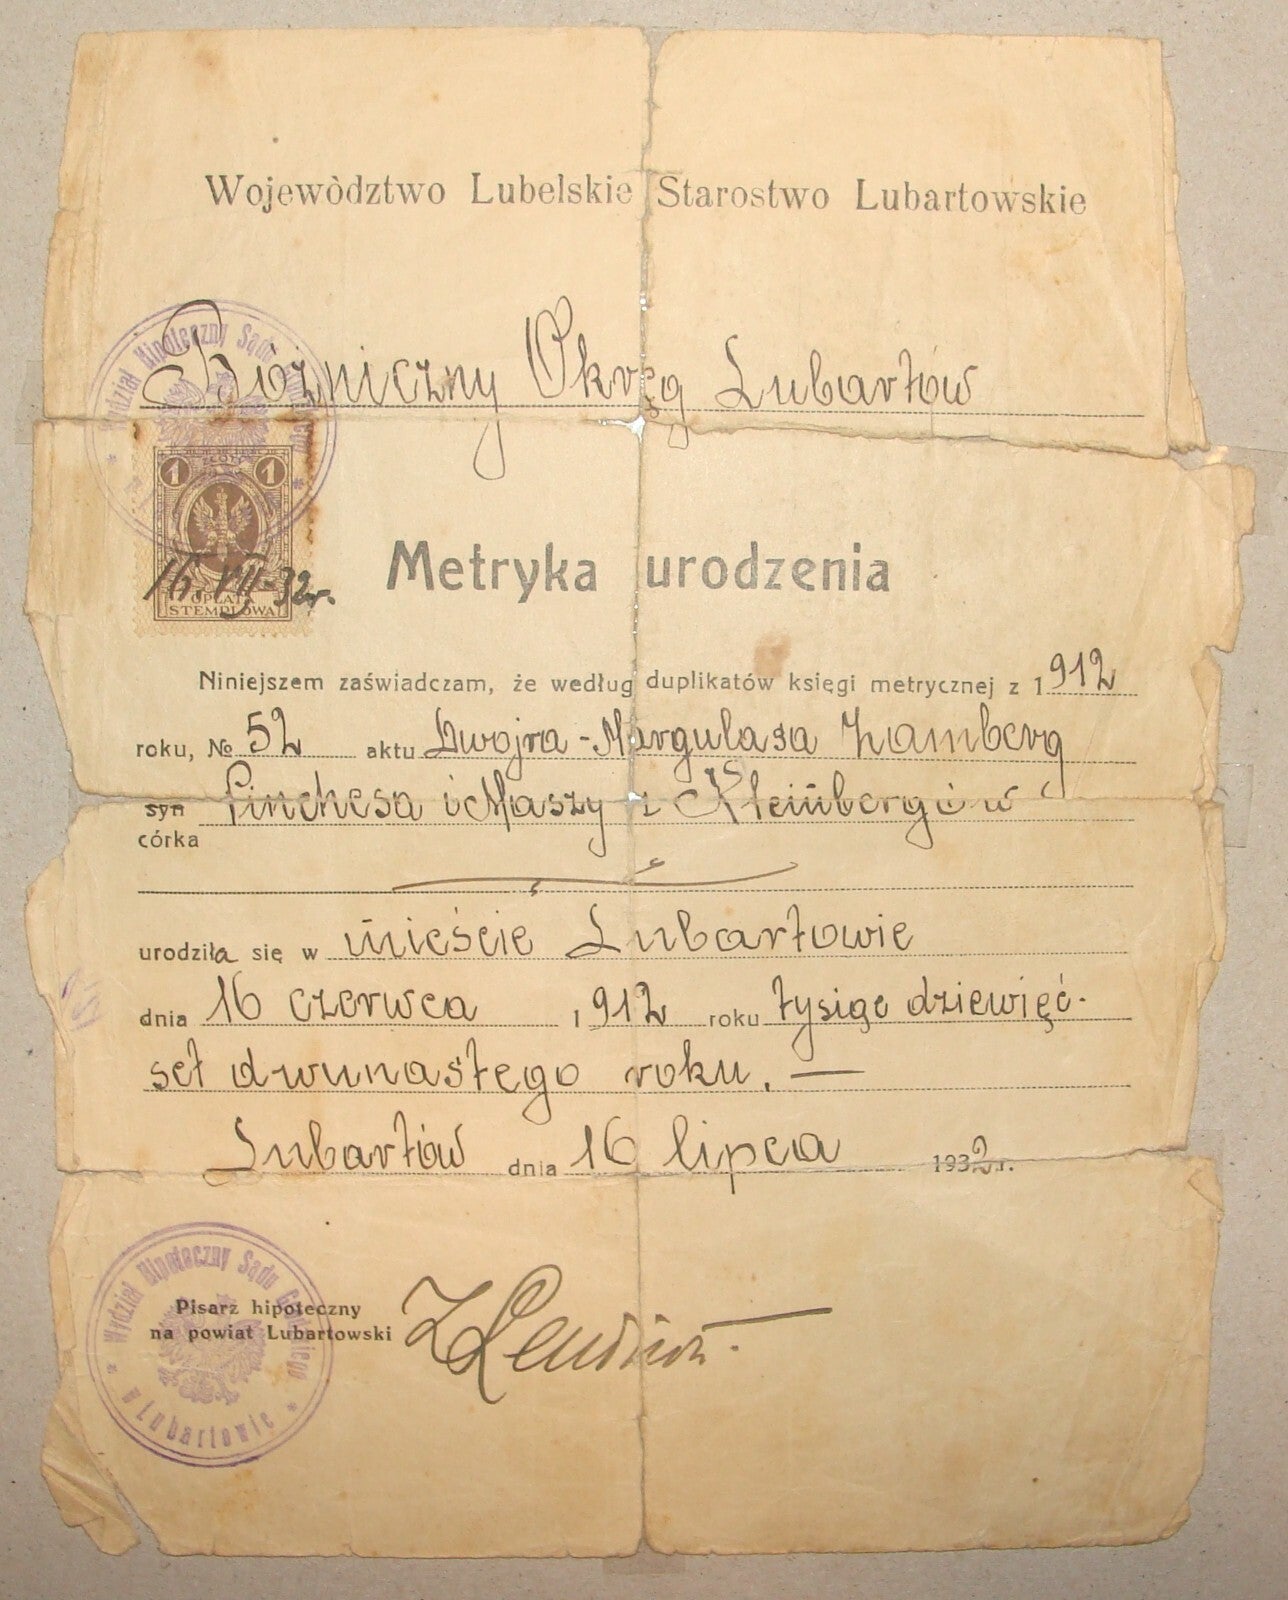 Województwo Lubelskie Starostwo Lubartowskie
Wydział Hipoteczny Sądu
Bóżniczny Okręg Lubartów
1 ZŁOTY 1
16.VII-32r.
OPŁATA
STEMPLOWA
Metryka urodzenia
Niniejszem zaświadczam, że według duplikatów księgi metrycznej z 1912
roku, № 52 aktu Dwojra-Margulasa Zamberg
syn Pinchesa i Maszy z Kleinbergów
córka
urodziła się w mieście Lubartowie
dnia 16 czerwca 1912 roku tysiąc dziewięć-
set dwunastego roku. —
Lubartów dnia 16 lipca 1932 r.
Wydział Hipoteczny Sądu Grodzkiego
w Lubartowie
Pisarz hipoteczny
na powiat Lubartowski